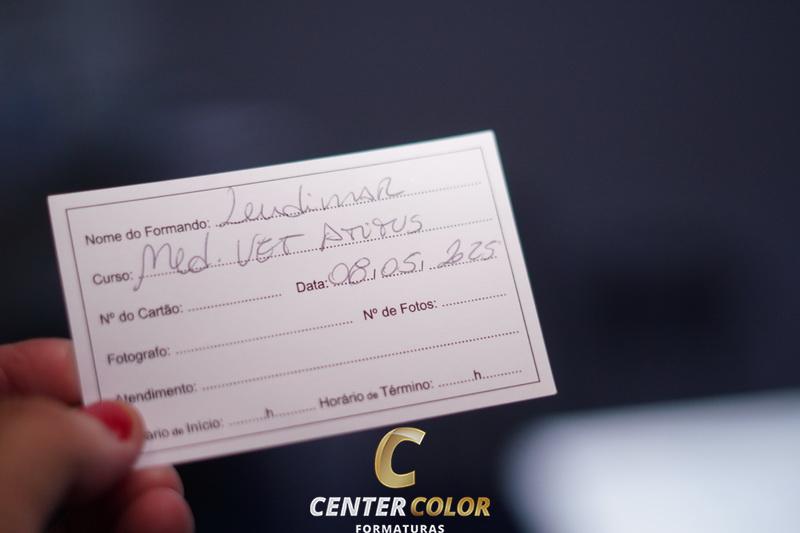 Nome do Formando: Leudimar
Curso: Med. VET ATITUS
Nº do Cartão: Data: 08.05.2025
Fotografo: Nº de Fotos:
Atendimento:
ário de Início: h Horário de Término: h
C
CENTER COLOR
FORMATURAS